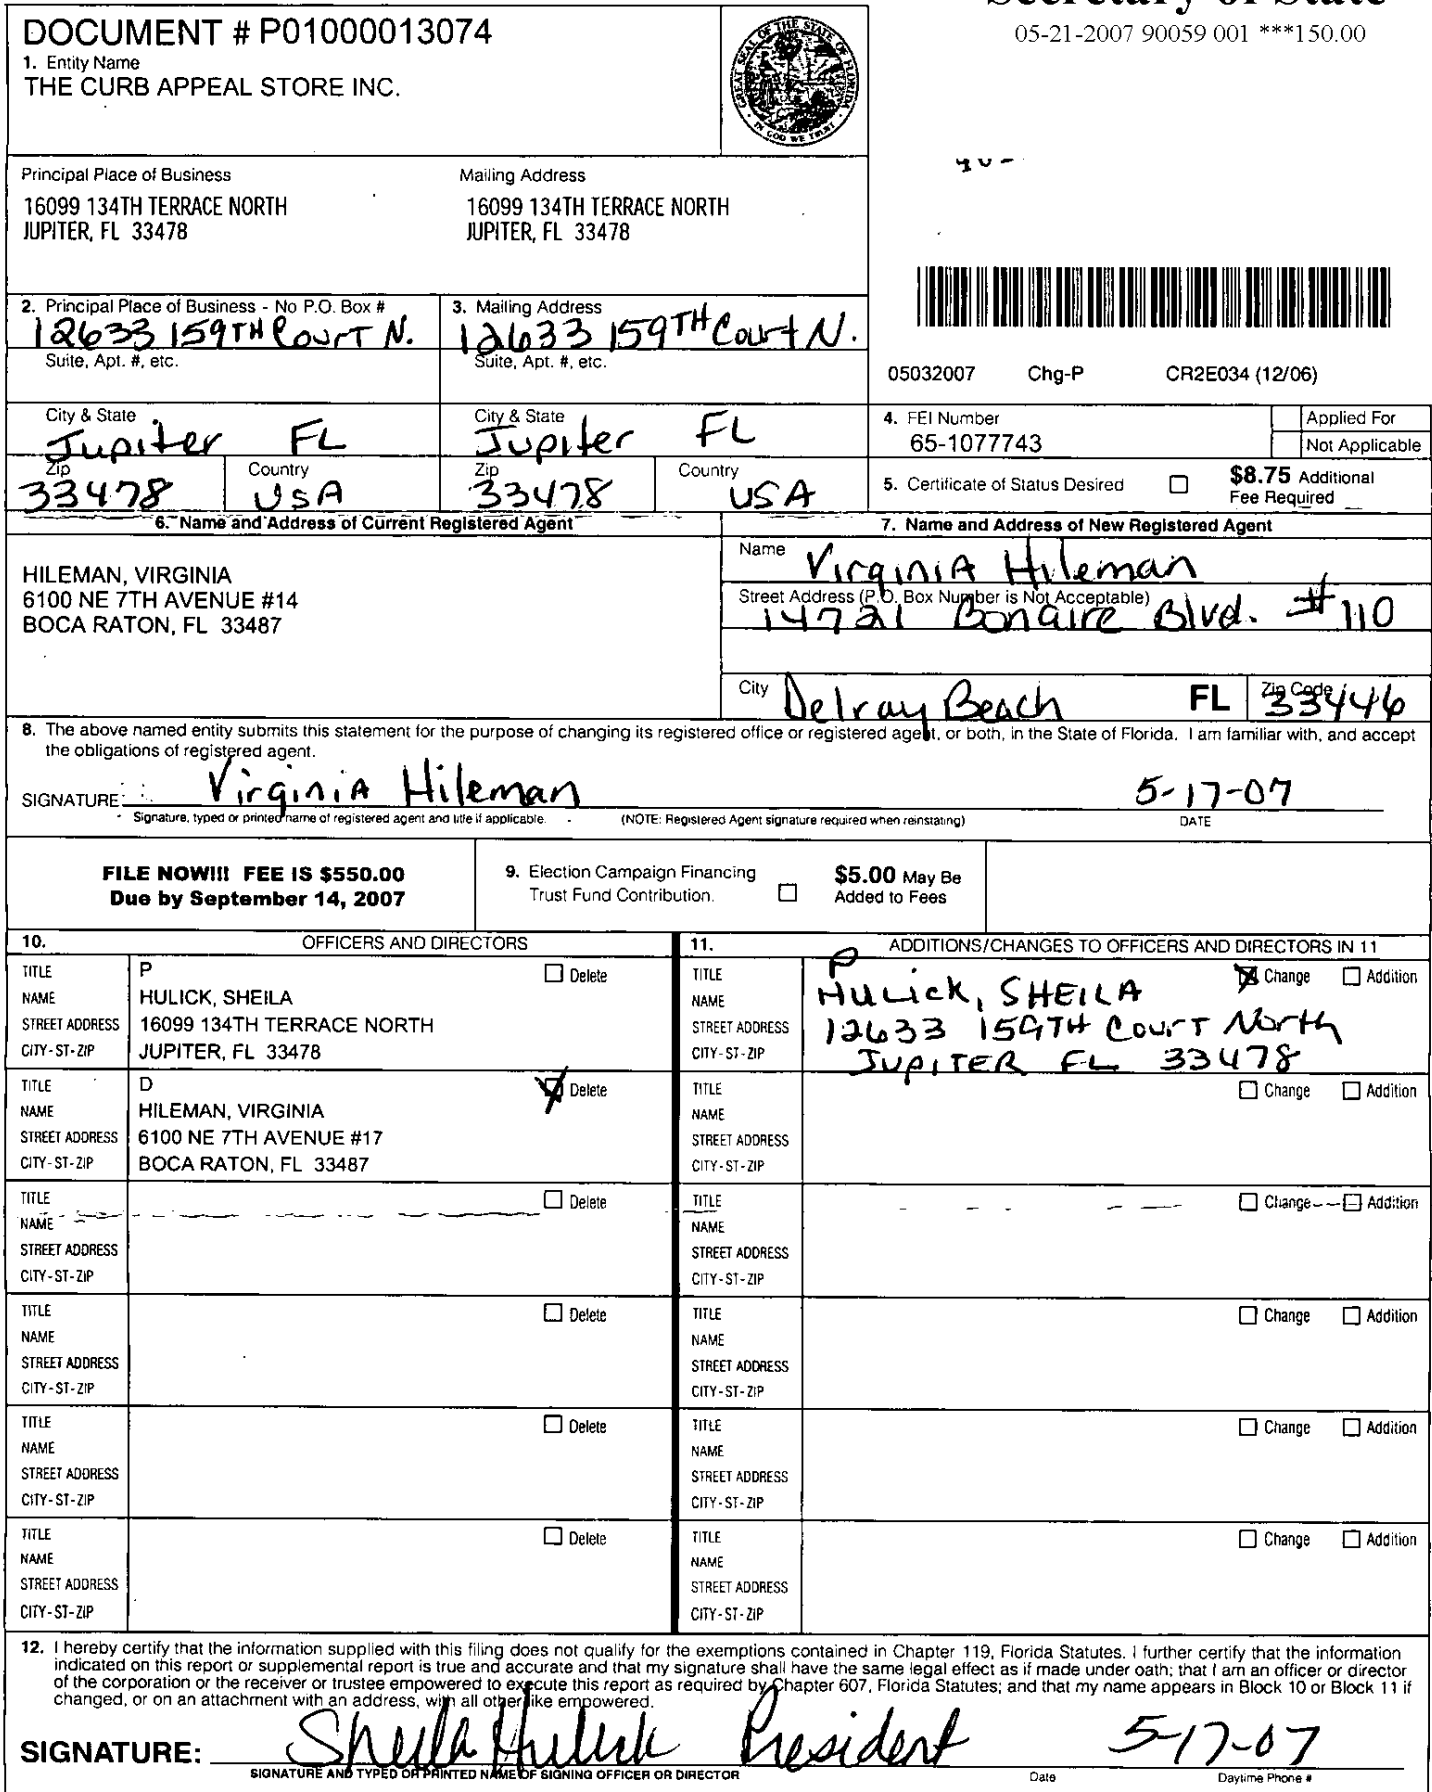 Secretary of State
05-21-2007 90059 001 ***150.00
DOCUMENT # P01000013074
1. Entity Name
THE CURB APPEAL STORE INC.
GREAT SEAL OF THE STATE OF FLORIDA
IN GOD WE TRUST
Principal Place of Business
16099 134TH TERRACE NORTH
JUPITER, FL 33478
Mailing Address
16099 134TH TERRACE NORTH
JUPITER, FL 33478
2. Principal Place of Business - No P.O. Box #
12633 159TH Court N.
Suite, Apt. #, etc.
City & State
Jupiter FL
Zip
33478
Country
USA
3. Mailing Address
12633 159TH Court N.
Suite, Apt. #, etc.
City & State
Jupiter FL
Zip
33478
Country
USA
05032007 Chg-P CR2E034 (12/06)
4. FEI Number
65-1077743
Applied For
Not Applicable
5. Certificate of Status Desired
$8.75 Additional
Fee Required
6. Name and Address of Current Registered Agent
HILEMAN, VIRGINIA
6100 NE 7TH AVENUE #14
BOCA RATON, FL 33487
7. Name and Address of New Registered Agent
Name Virginia Hileman
Street Address (P.O. Box Number is Not Acceptable)
14721 Bonaire Blvd. #110
City Delray Beach FL Zip Code 33446
8. The above named entity submits this statement for the purpose of changing its registered office or registered agent, or both, in the State of Florida. I am familiar with, and accept
the obligations of registered agent.
SIGNATURE: Virginia Hileman 5-17-07
Signature, typed or printed name of registered agent and title if applicable. (NOTE: Registered Agent signature required when reinstating) DATE
FILE NOW!!! FEE IS $550.00
Due by September 14, 2007
9. Election Campaign Financing
Trust Fund Contribution.
$5.00 May Be
Added to Fees
10. OFFICERS AND DIRECTORS
TITLE P Delete
NAME HULICK, SHEILA
STREET ADDRESS 16099 134TH TERRACE NORTH
CITY-ST-ZIP JUPITER, FL 33478
TITLE D Delete
NAME HILEMAN, VIRGINIA
STREET ADDRESS 6100 NE 7TH AVENUE #17
CITY-ST-ZIP BOCA RATON, FL 33487
TITLE Delete
NAME
STREET ADDRESS
CITY-ST-ZIP
TITLE Delete
NAME
STREET ADDRESS
CITY-ST-ZIP
TITLE Delete
NAME
STREET ADDRESS
CITY-ST-ZIP
TITLE Delete
NAME
STREET ADDRESS
CITY-ST-ZIP
11. ADDITIONS/CHANGES TO OFFICERS AND DIRECTORS IN 11
TITLE P Change Addition
NAME Hulick, SHEILA
STREET ADDRESS 12633 159TH Court North
CITY-ST-ZIP JUPITER FL 33478
TITLE Change Addition
NAME
STREET ADDRESS
CITY-ST-ZIP
TITLE Change Addition
NAME
STREET ADDRESS
CITY-ST-ZIP
TITLE Change Addition
NAME
STREET ADDRESS
CITY-ST-ZIP
TITLE Change Addition
NAME
STREET ADDRESS
CITY-ST-ZIP
TITLE Change Addition
NAME
STREET ADDRESS
CITY-ST-ZIP
12. I hereby certify that the information supplied with this filing does not qualify for the exemptions contained in Chapter 119, Florida Statutes. I further certify that the information
indicated on this report or supplemental report is true and accurate and that my signature shall have the same legal effect as if made under oath; that I am an officer or director
of the corporation or the receiver or trustee empowered to execute this report as required by Chapter 607, Florida Statutes; and that my name appears in Block 10 or Block 11 if
changed, or on an attachment with an address, with all other like empowered.
SIGNATURE: Sheila Hulick President 5-17-07
SIGNATURE AND TYPED OR PRINTED NAME OF SIGNING OFFICER OR DIRECTOR Date Daytime Phone #